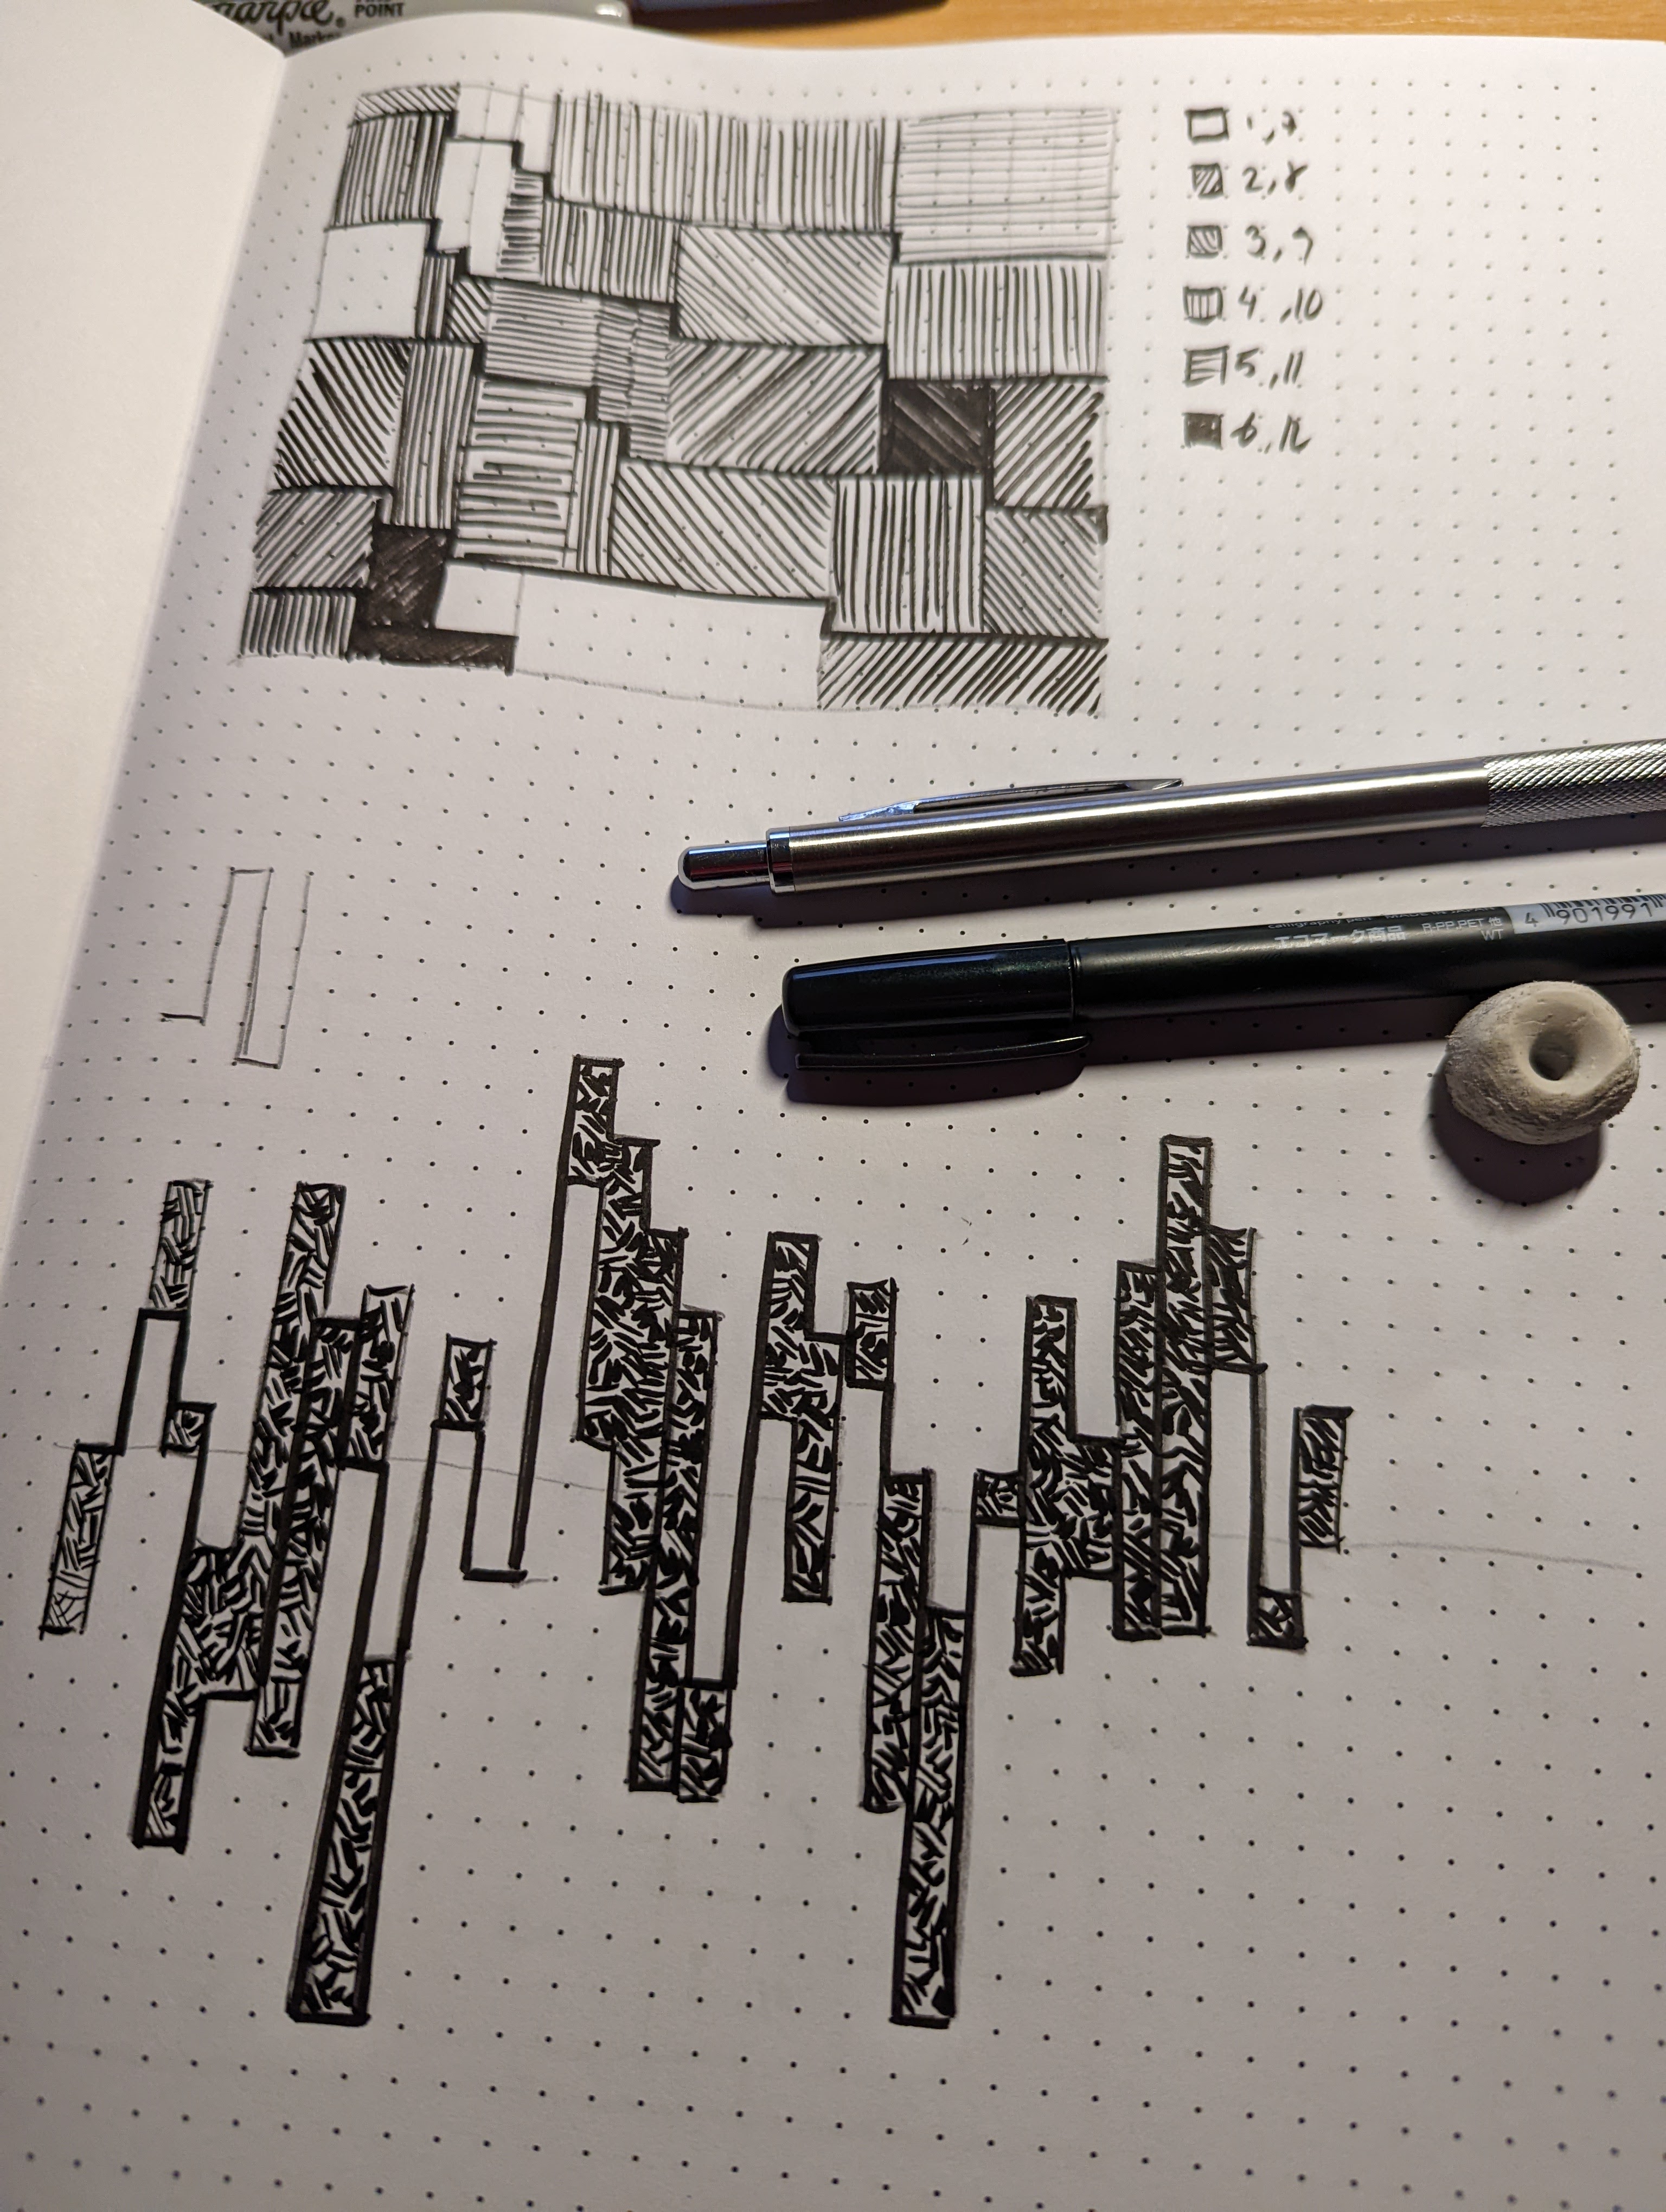 Sharpie®
POINT
Marker
1,7
2,8
3,9
4,10
5,11
6,12
calligraphy pen MADE IN JAPAN
エコマーク商品
R-PP.PET 他
WT
4 901991